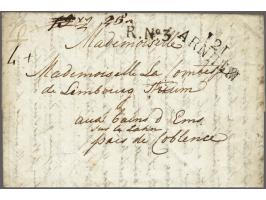 R. No. 3. ARNHEM
Mademoiselle
Mademoiselle La Comtesse
de Limbourg Stirum
aux bains d'Ems
sur la Lahn
près de Coblence